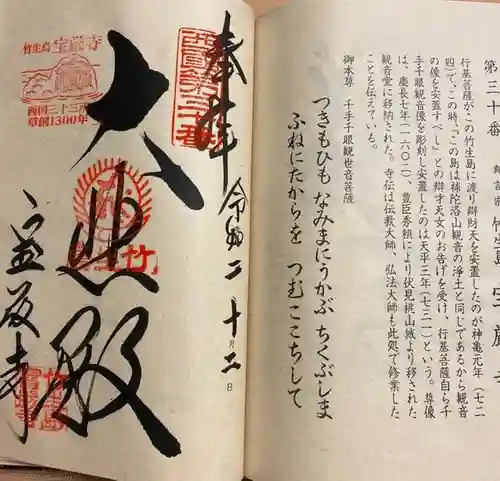 第三十番
行基菩薩がこの竹生島に渡り辯財天を安置したのが神亀元年（七二
四）で、この時、「この島は補陀洛山観音の浄土と同じであるから観音
の像を安置すべし」との辯才天女のお告げを受け、行基菩薩自ら千
手千眼観音像を彫刻し安置したのは天平三年（七三一）という。尊像
は、慶長七年（一六〇二）、豊臣秀頼により伏見桃山城より移された
観音堂に移納された。寺伝は伝教大師、弘法大師も此処で修業した
ことを伝えている。
御本尊 千手千眼観世音菩薩
つきもひも なみまにうかぶ ちくぶしま
ふねにたからを つむここちして
奉拝 令和二 十月二日
西国第三十番
大悲殿
竹
竹生島 宝厳寺
西国三十三所
草創1300年
宝厳寺